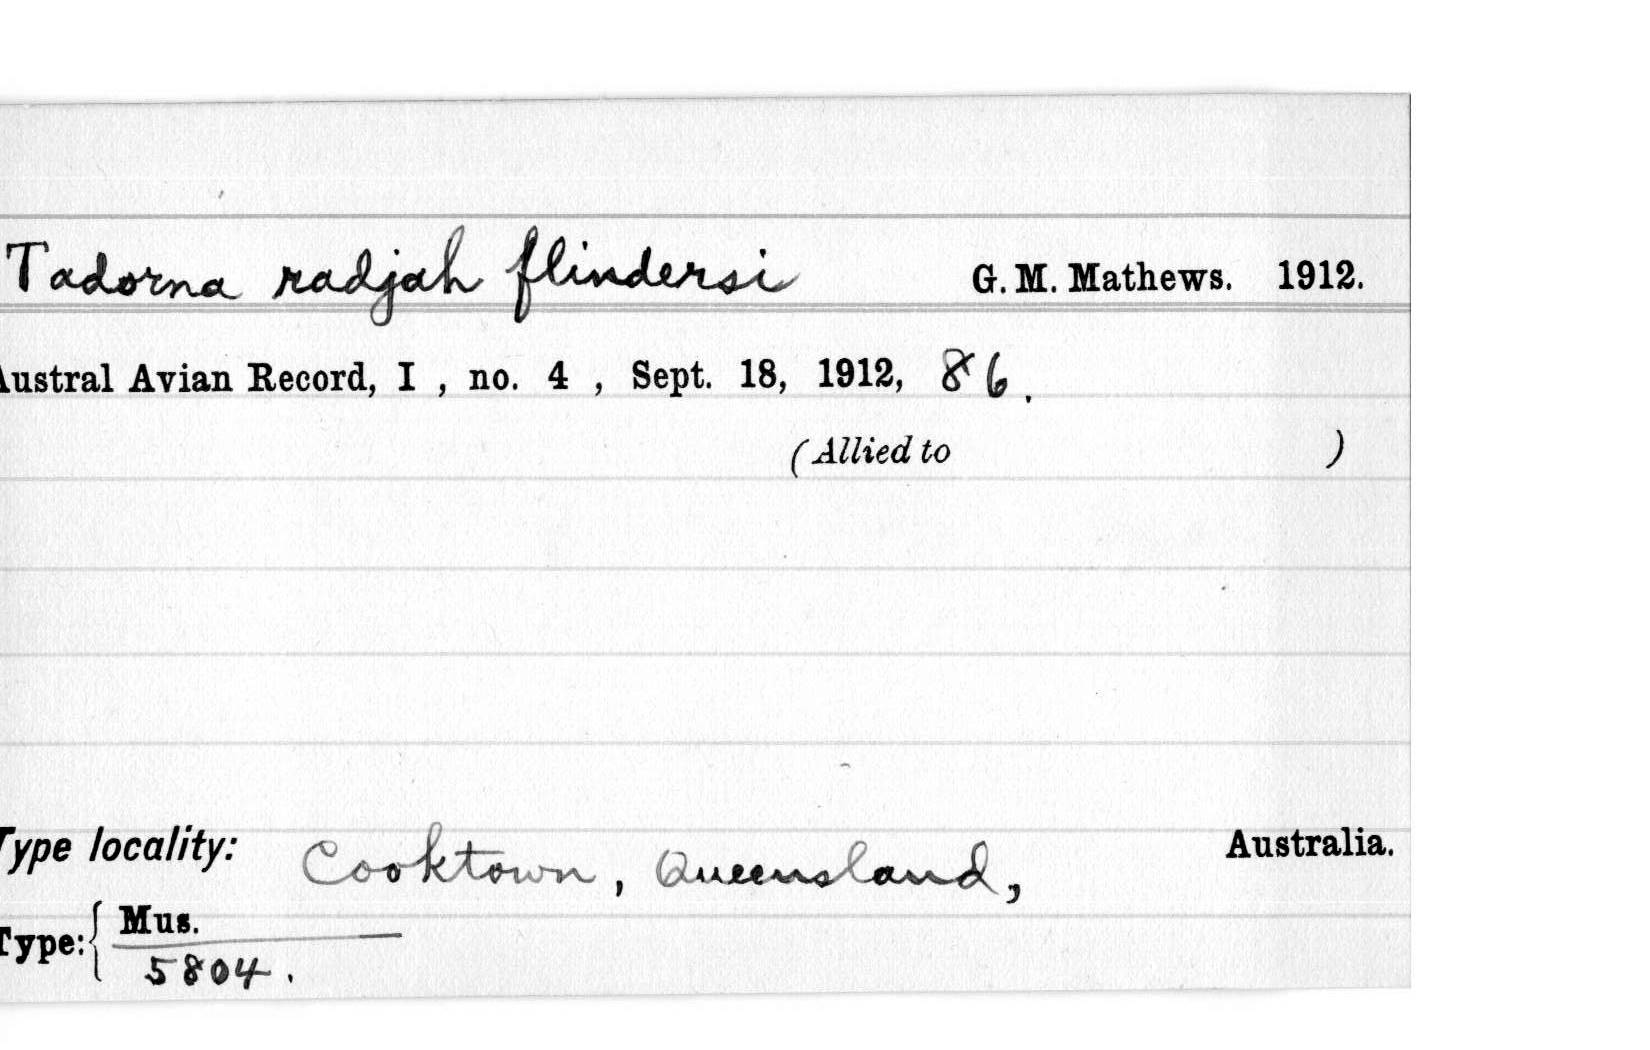 Tadorna radjah flindersi G. M. Mathews. 1912.
Austral Avian Record, I , no. 4 , Sept. 18, 1912, 86.
(Allied to )
Type locality: Cooktown, Queensland, Australia.
Type: { Mus.
5804.